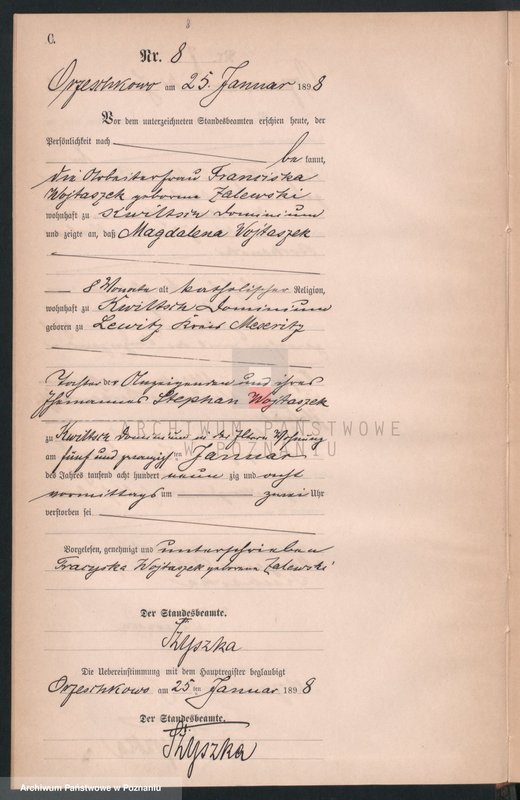 8
C.
Nr. 8
Orzeschkowo am 25. Januar 1898
Vor dem unterzeichneten Standesbeamten erschien heute, der
Persönlichkeit nach
be kannt,
die Arbeiterfrau Franciska
Wojtaszek geborene Zalewski
wohnhaft zu Kwiltsch Dominium
und zeigte an, daß Magdalena Wojtaszek
8 Monate alt katholischer Religion,
wohnhaft zu Kwiltsch Dominium
geboren zu Lewitz Kreis Meseritz
Tochter der Anzeigenden und ihres
Ehemannes Stephan Wojtaszek
zu Kwiltsch Dominium in der Eltern Wohnung
am fünf und zwanzigsten Januar
des Jahres tausend acht hundert neun zig und acht
vormittags um zwei Uhr
verstorben sei
Vorgelesen, genehmigt und unterschrieben
Wojtaszek geborene Zalewski
Der Standesbeamte.
Ryszka
Die Uebereinstimmung mit dem Hauptregister beglaubigt
Orzeschkowo am 25 ten Januar 1898
Der Standesbeamte.
Ryszka
ARCHIWUM PAŃSTWOWE
W POZNANIU
Archiwum Państwowe w Poznaniu